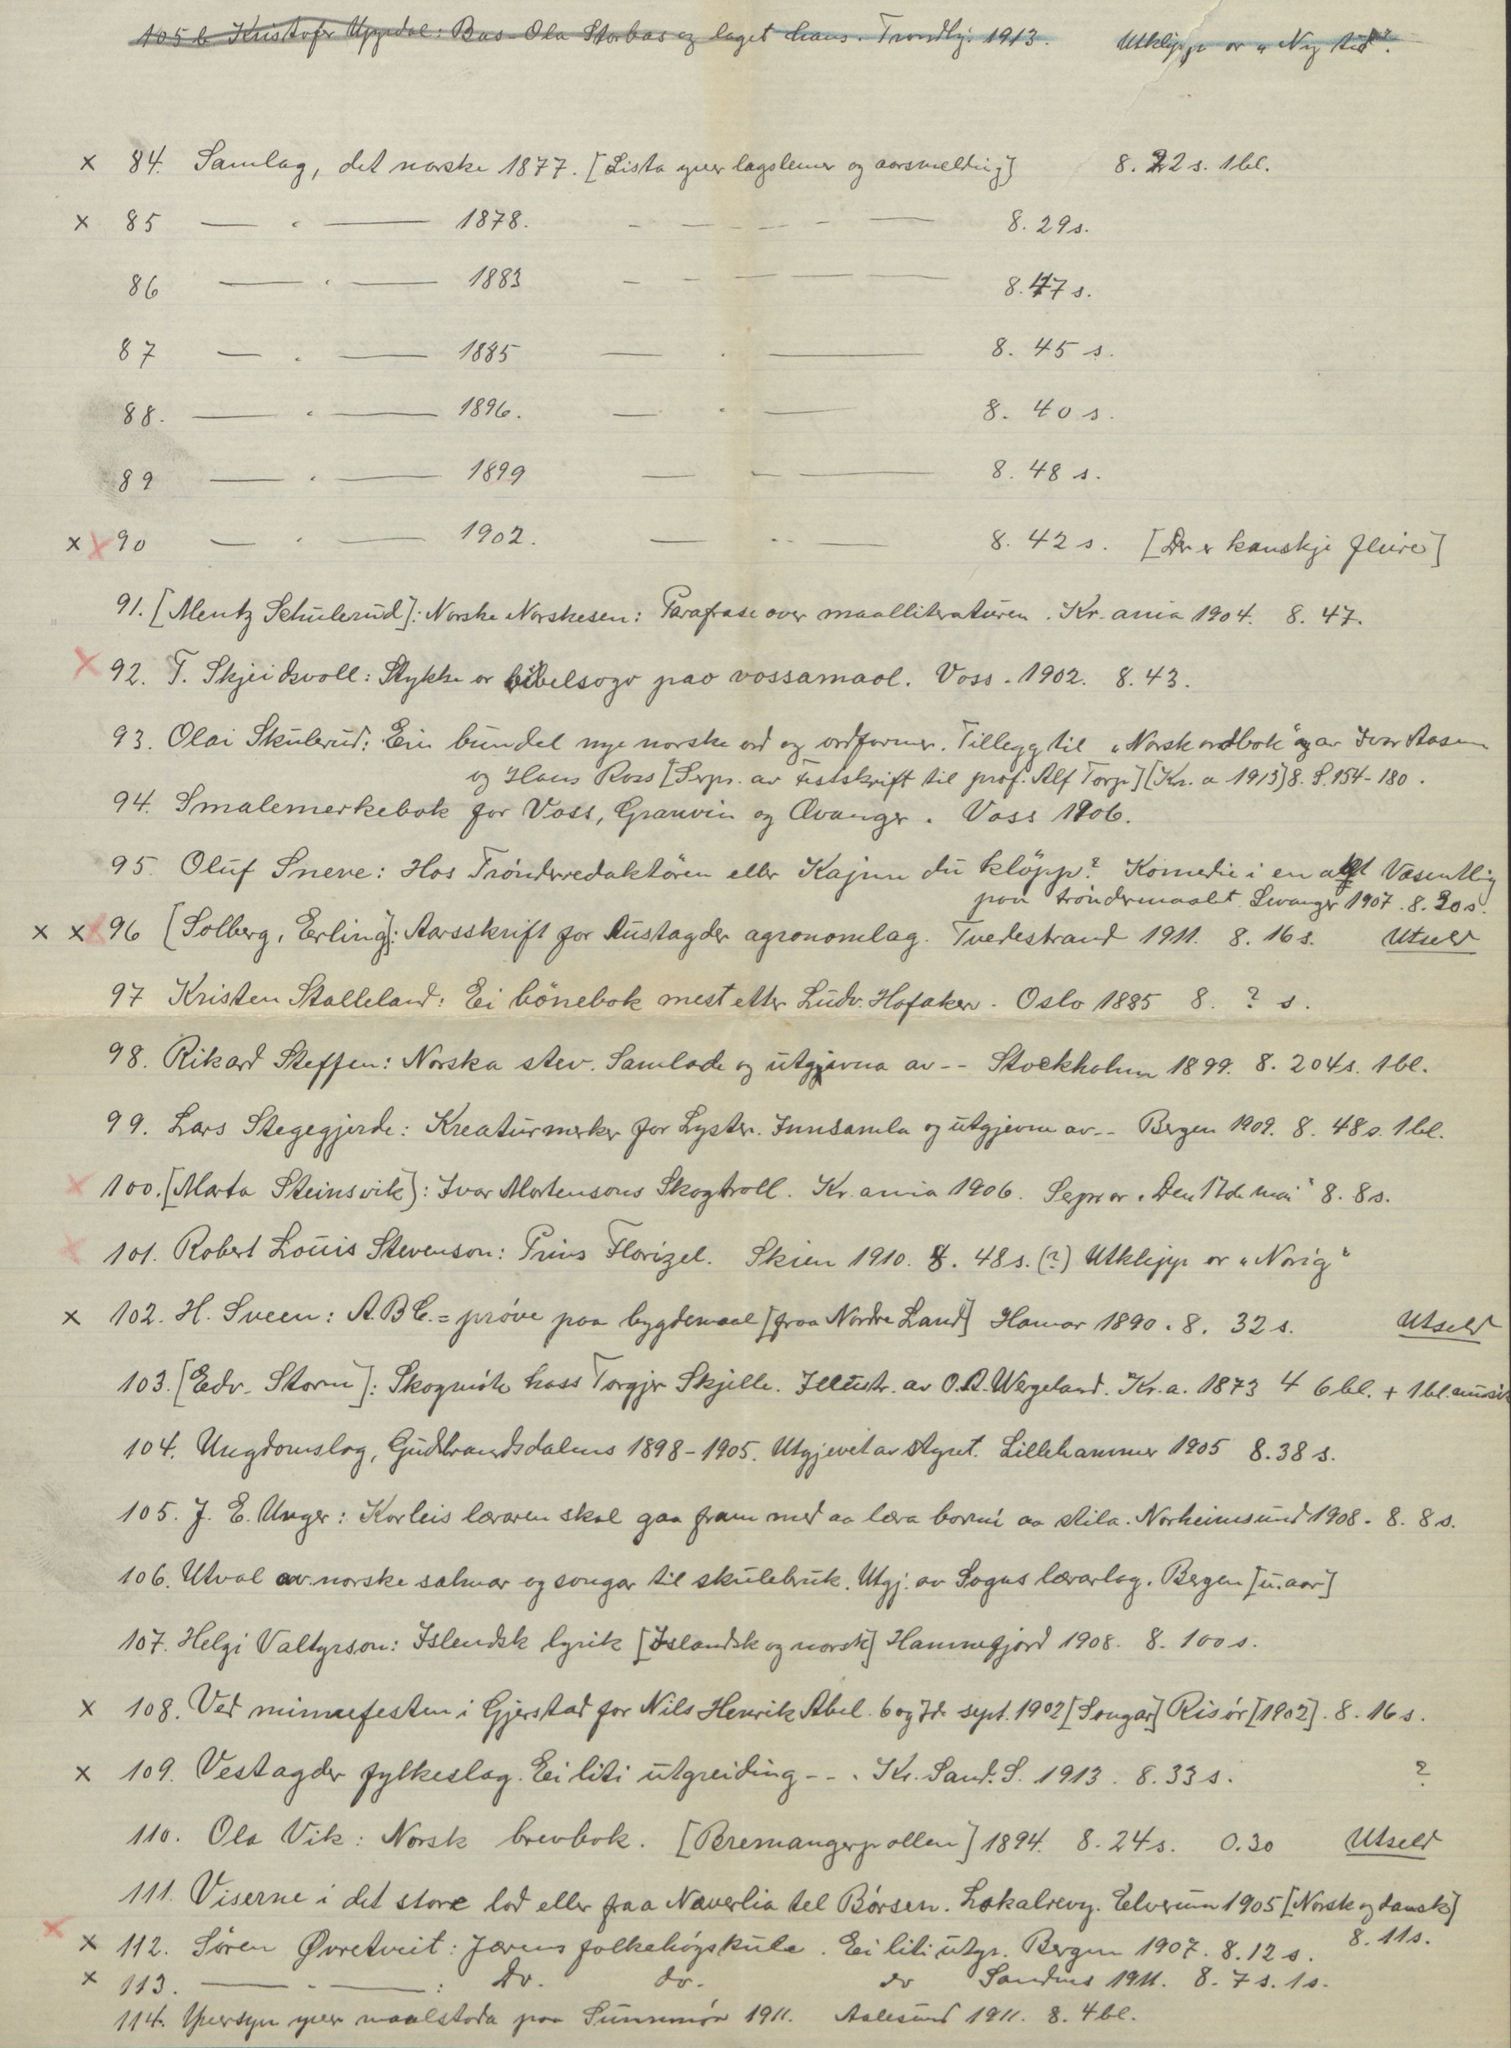 105 b Kristofer Uppdal: Bas-Ola Storbas og laget hans. Trondhj. 1913. Utklypp or "Ny tid".
x 84. Samlag, det norske 1877. [Lista yver lagslemer og aarsmelding] 8. 22 s. 1 bl.
x 85 — " — 1878. - — - — - — 8. 29 s.
86 — " — 1883 - - — — 8. 47 s.
87 — " — 1885 — " — 8. 45 s.
88. — " — 1896. — " — 8. 40 s.
89 — " — 1899 — - — 8. 48 s.
x x 90 — " — 1902. — " — 8. 42 s. [Der er kanskje fleire]
91. [Mentz Schulerud]: Norske Norskesen: Parafrase over maalliteraturen. Kr.ania 1904. 8. 47.
x 92. T. Skjeidsvoll: Stykke or bibelsogo pao vossamaol. Voss. 1902. 8. 43.
93. Olai Skulerud: Ein bundel nye norske ord og ordformer. Tillegg til "Norsk ordbok" av Ivar Aasen
og Hans Ross [Serpr. av Festskrift til prof. Alf Torp] [Kr.a 1913] 8. S. 154-180.
94. Smalemerkebok for Voss, Granvin og Evanger. Voss 1906.
95. Oluf Sneve: Hos Trönderredaktören eller Kajnn du klöpp? Komedie i en akt Væsentlig
paa tröndermaalet. Levanger 1907. 8. 20 s.
x x x 96 [Solberg, Erling]: Aarsskrift for Austagder agronomlag. Tvedestrand 1911. 8. 16 s. Utseld
97 Kristen Stalleland: Ei bönebok mest etter Ludv. Hofaker. Oslo 1885 8. ? s.
98. Rikard Steffen: Norska stev. Samlade og utgivna av -- Stockholm 1899. 8. 204 s. 1 bl.
99. Lars Stegegjerde: Kreaturmerker for Lyster. Innsamla og utgjevne av -- Bergen 1909. 8. 48 s. 1 bl.
x 100. [Marta Steinsvik]: Ivar Mortensons Skogtroll. Kr.ania 1906. Serpr or "Den 17de mai" 8. 8 s.
x 101. Robert Louis Stevenson: Prins Florizel. Skien 1910. 8. 48 s. (?) Utklypp or "Norig"
x 102. H. Sveen: A.B.C. = prøve paa bygdemaal [fraa Nordre Land] Hamar 1890. 8. 32 s. Utseld
103. [Edv. Storm]: Skogmöte hass Torgjer Skjille. Illustr. av O.A. Wergeland. Kr.a. 1873 4 6 bl. + 1 bl. musik
104. Ungdomslag, Gudbrandsdalens 1898-1905. Utgjevet av styret. Lillehammer 1905 8. 38 s.
105. J. E. Unger: Korleis læraren skal gaa fram med aa læra borni aa stila. Norheimsund 1908. 8. 8 s.
106. Utval av norske salmar og songar til skulebruk. Utgj. av Sogns lærarlag. Bergen [u. aar]
107. Helgi Valtyrson: Islendsk lyrik [Islandsk og norsk] Hamnefjord 1908. 8. 100 s.
x 108. Ved minnefesten i Gjerstad for Nils Henrik Abel. 6 og 7de sept. 1902 [Songar] Risör [1902]. 8. 16 s.
x 109. Vestagder fylkeslag. Ei liti utgreiding --. Kr.Sand. S. 1913. 8. 33 s. ?
110. Ola Vik: Norsk brevbok. [Bremangerpollen] 1894. 8. 24 s. 0.30 Utseld
111. Viserne i det store lod eller fraa Næverlia tel Börsen. Lokalrevy. Elverum 1905 [Norsk og dansk]
8. 11 s.
x x 112. Sören Øvretveit: Jærens folkehögskule. Ei liti utgr. Bergen 1907. 8. 12 s.
x 113. — " — : do. do. do Sandnes 1911. 8. 7 s. 1 s.
114. Yversyn yver maalstoda paa Sunnmör 1911. Aalesund 1911. 8. 4 bl.